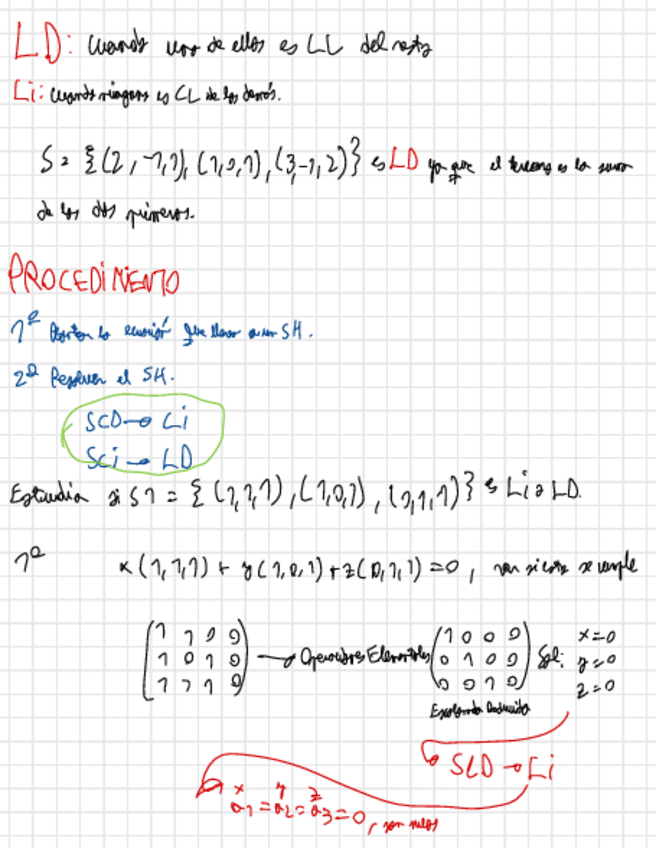 LD: Cuando uno de ellos es CL del resto
Li: Cuando ninguno es CL de los demás.
S = {(2,-1,1),(1,0,1),(3,-1,2)} es LD ya que el tercero es la suma
de los dos primeros.
PROCEDIMIENTO
1º la ecuación que lleva a un SH.
2º Resolver el SH.
SCD → Li
SCi → LD
Estudia si S1 = {(1,1,1),(1,0,1),(0,1,1)} es Li o LD.
1º x(1,1,1) + y(1,0,1) + z(0,1,1) = 0, se cumple
(1 1 0 0 (1 0 0 0 x=0
1 0 1 0 → Operaciones Elementales 0 1 0 0 Sol: y=0
1 1 1 0) 0 0 1 0) z=0
Escalonada Reducida
SCD → Li
x y z
a1 = a2 = a3 = 0, son nulos